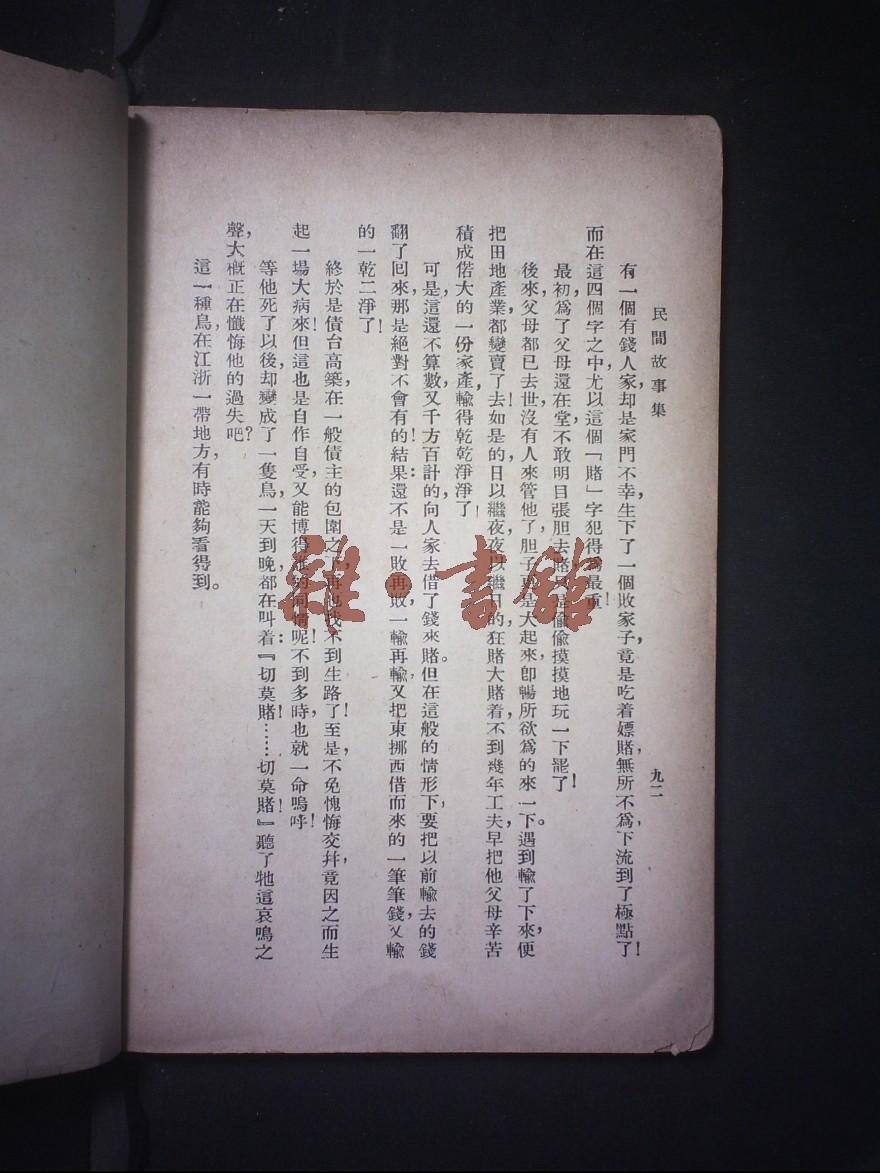 民間故事集
九二
有一個有錢人家,却是家門不幸,生下了一個敗家子,竟是吃着嫖賭,無所不爲,下流到了極點了!
而在這四個字之中,尤以這個「賭」字犯得爲最重!
最初,爲了父母還在堂,不敢明目張胆去賭,只是偷偷摸摸地玩一下罷了!
後來,父母都已去世,沒有人來管他了,胆子更是大起來,卽暢所欲爲的來一下。遇到輸了下來,便
把田地產業都變賣了去!如是的,日以繼夜,夜以繼日的狂賭大賭着,不到幾年工夫,早把他父母辛苦
積成偌大的一份家產,輸得乾乾淨淨了!
可是,這還不算數,又千方百計的向人家去借了錢來賭。但在這般的情形下,要把以前輸去的錢
翻了回來,那是絕對不會有的!結果:還不是一敗再敗,一輸再輸,又把東挪西借而來的一筆筆錢,又輸
的一乾二淨了!
終於是債台高築,在一般債主的包圍之,再也找不到生路了!至是,不免愧悔交幷,竟因之而生
起一場大病來!但這也是自作自受,又能博得的同情呢!不到多時,也就一命嗚呼!
等他死了以後,却變成了一隻鳥,一天到晚,都在叫着:『切莫賭!……切莫賭!』聽了牠這哀鳴之
聲,大槪正在懺悔他的過失吧?
這一種鳥,在江浙一帶地方,有時能夠看得到。
雜·書館